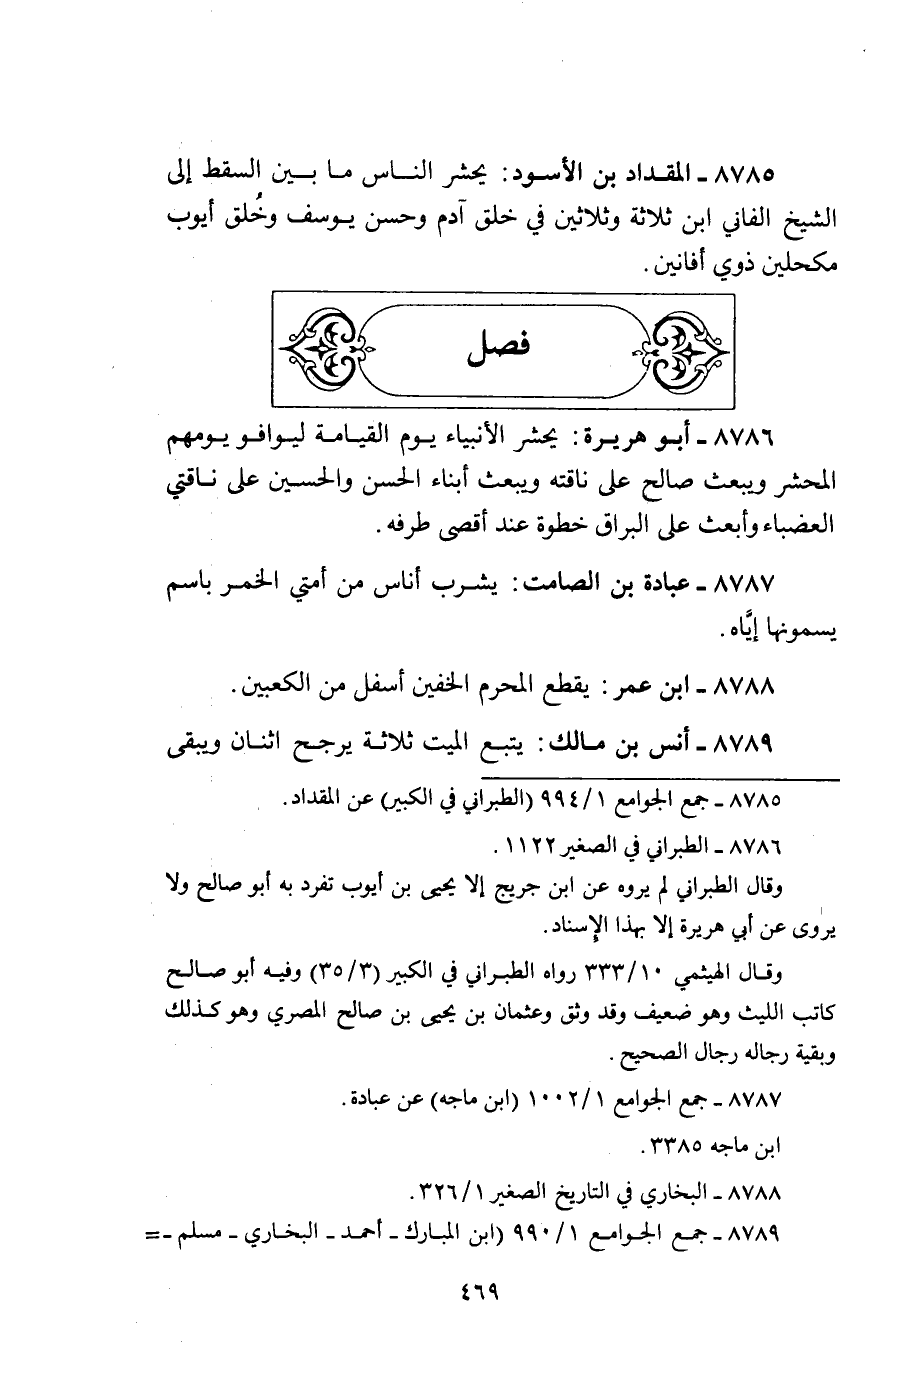 ٨٧٨٥ ـ المقداد بن الأسود: يحشر الناس ما بين السقط إلى
الشيخ الفاني ابن ثلاثة وثلاثين في خلق آدم وحسن يوسف وخُلق أيوب
مكحلين ذوي أفانين.
فصل
٨٧٨٦ ـ أبو هريرة: يحشر الأنبياء يوم القيامة ليوافو يومهم
المحشر ويبعث صالح على ناقته ويبعث أبناء الحسن والحسين على ناقتي
العضباء وأبعث على البراق خطوة عند أقصى طرفه.
٨٧٨٧ ـ عبادة بن الصامت: يشرب أناس من أمتي الخمر باسم
يسمونها إيَّاه.
٨٧٨٨ ـ ابن عمر: يقطع المحرم الخفين أسفل من الكعبين.
٨٧٨٩ ـ أنس بن مالك: يتبع الميت ثلاثة يرجح اثنان ويبقى
٨٧٨٥ ـ جمع الجوامع ٩٩٤/١ (الطبراني في الكبير) عن المقداد.
٨٧٨٦ ـ الطبراني في الصغير ١١٢٢.
وقال الطبراني لم يروه عن ابن جريج إلا يحيى بن أيوب تفرد به أبو صالح ولا
يروى عن أبي هريرة إلا بهذا الإسناد.
وقال الهيثمي ٣٣٣/١٠ رواه الطبراني في الكبير (٣٥/٣) وفيه أبو صالح
كاتب الليث وهو ضعيف وقد وثق وعثمان بن يحيى بن صالح المصري وهو كذلك
وبقية رجاله رجال الصحيح.
٨٧٨٧ ـ جمع الجوامع ١٠٠٢/١ (ابن ماجه) عن عبادة.
ابن ماجه ٣٣٨٥.
٨٧٨٨ ـ البخاري في التاريخ الصغير ٣٢٦/١.
٨٧٨٩ ـ جمع الجوامع ٩٩٠/١ (ابن المبارك ـ أحمد ـ البخاري ـ مسلم ـ=
٤٦٩